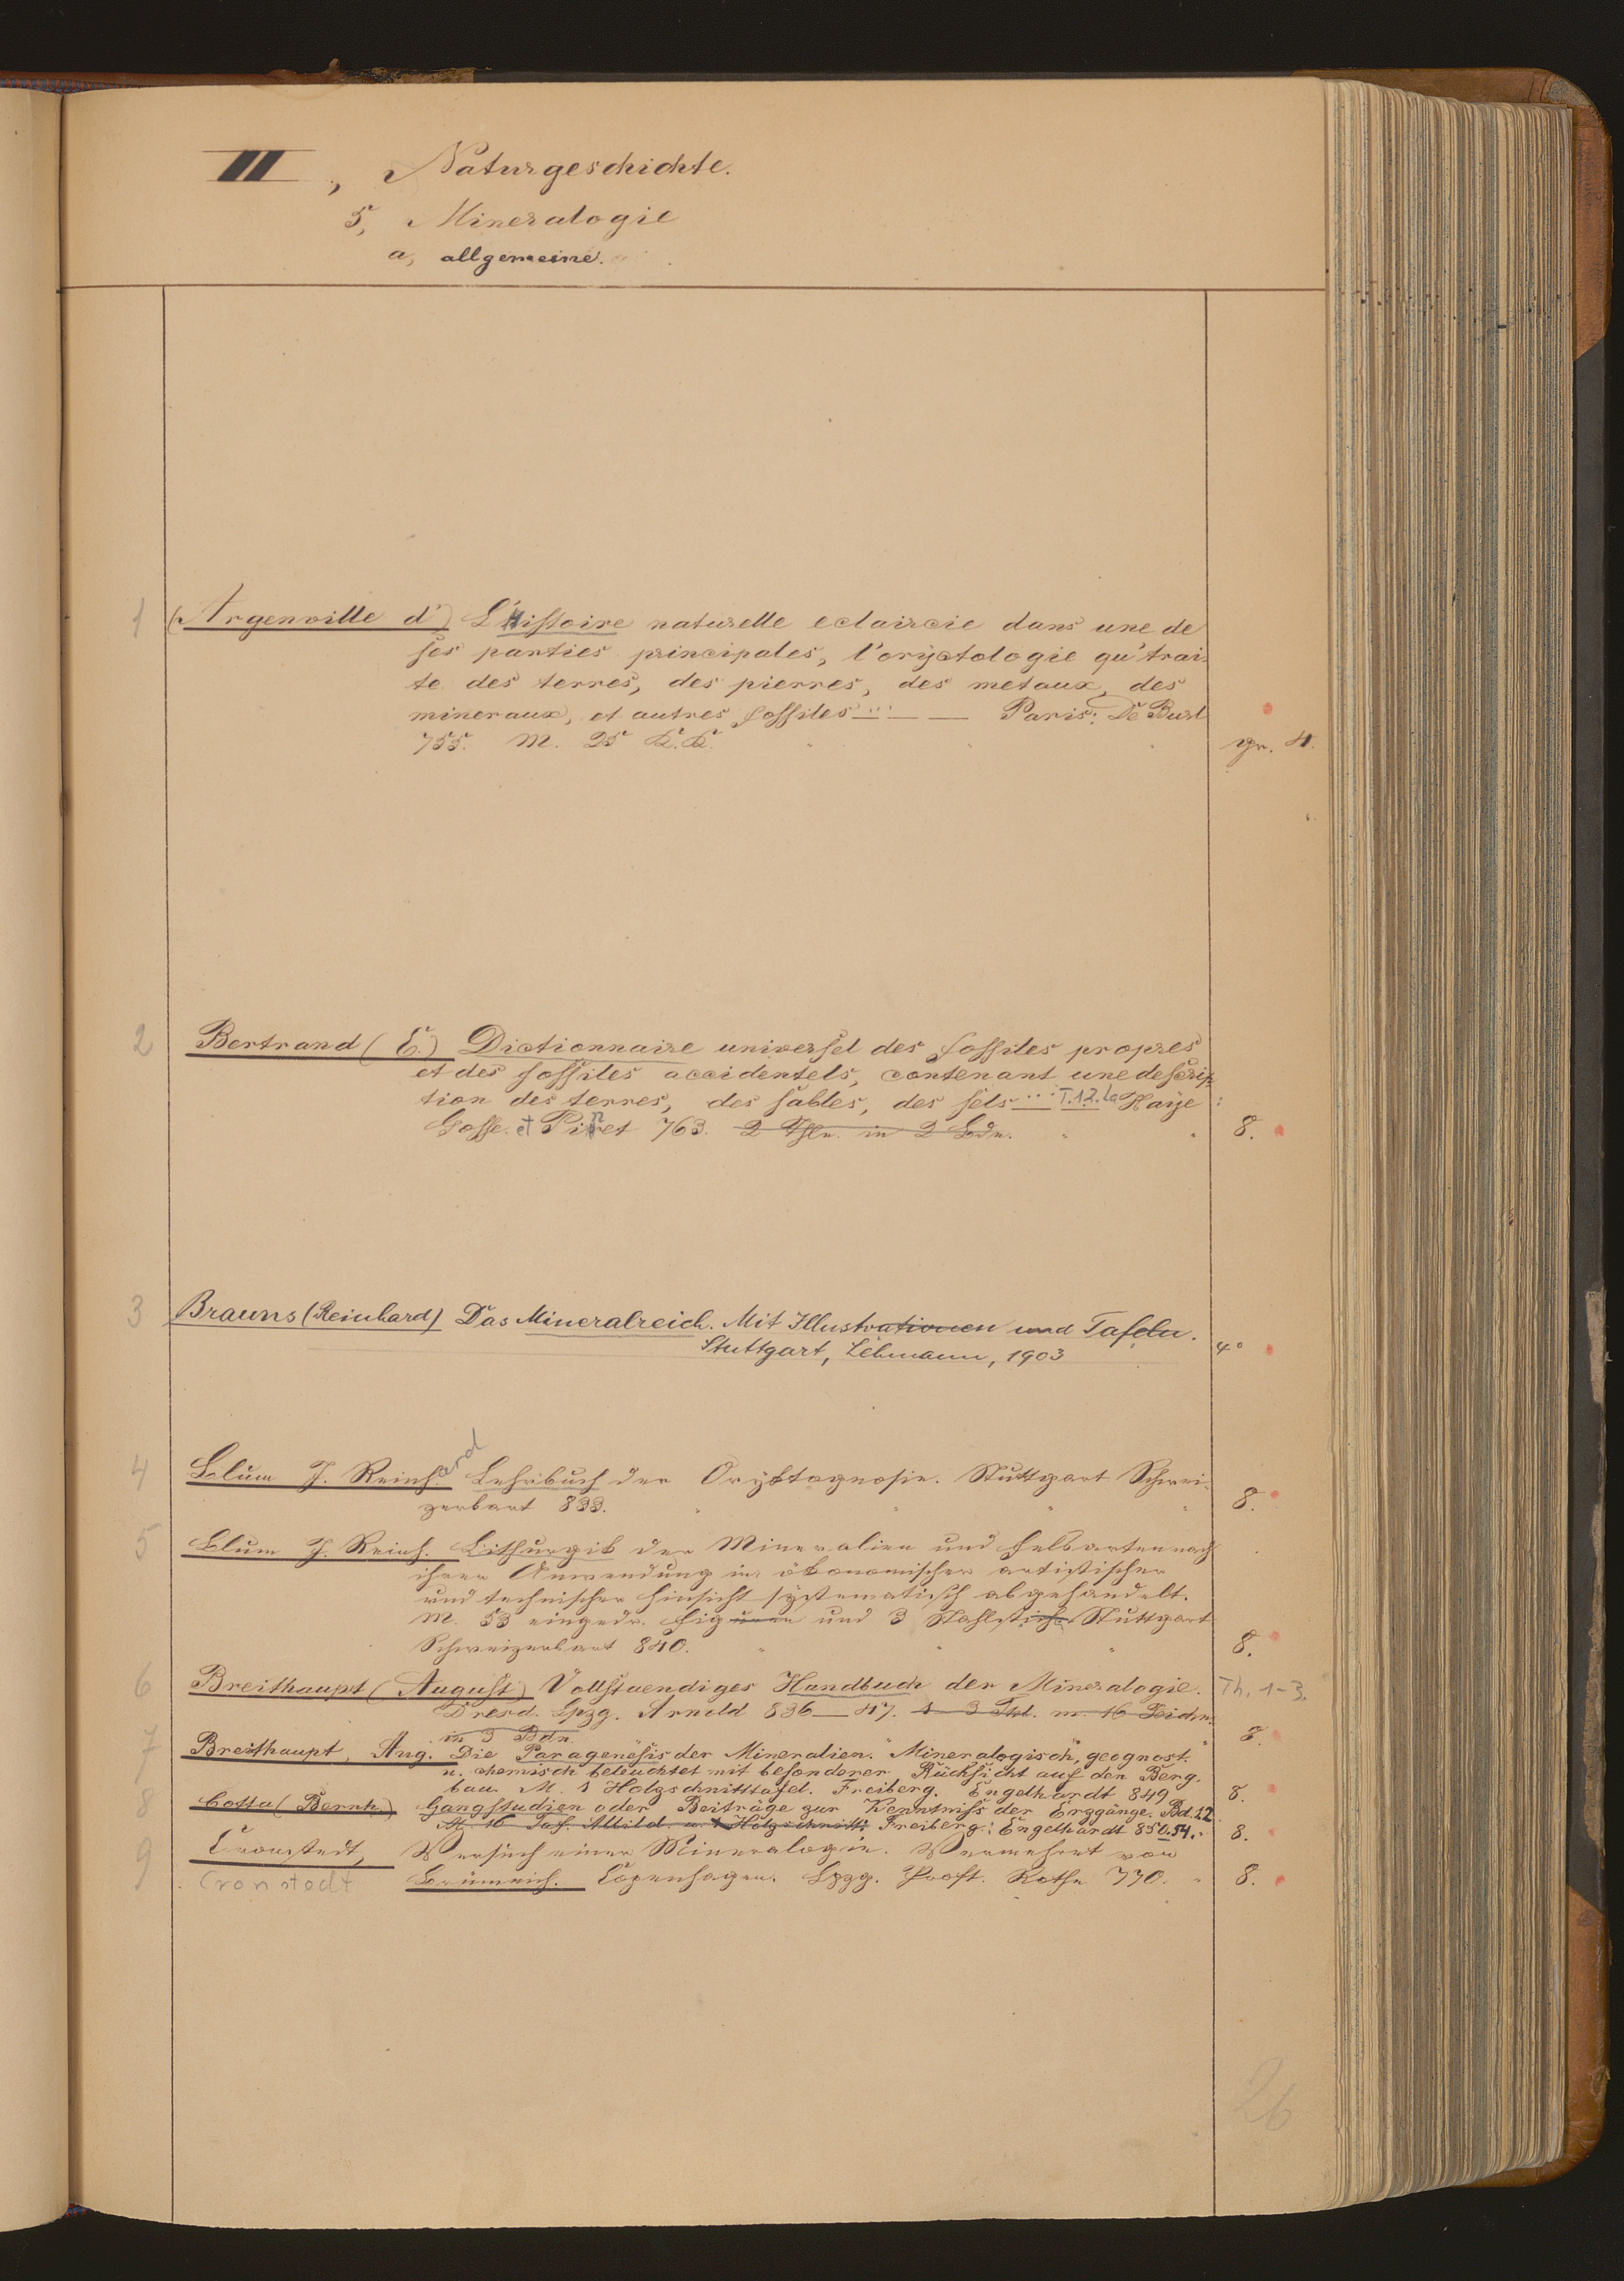 III, Naturgeschichte.
5, Mineralogie
a, allgemeine.
1 (Argenville d') L'Histoire naturelle eclaircie dans une de
ses parties principales, l'oryctologie qu'trai-
te des terres, des pierres, des metaux, des
mineraux, et autres fossiles ... Paris: De Bure
755. M. 25 K.K. gr. 4.
2 Bertrand (E.) Dictionnaire universel des fossiles propres
et des fossiles accidentels, contenant une descrip-
tion des terres, des sables, des sels ... T.1.2. la Haye:
Gosse. et Pinet 763. 2 Thle. in 2 Bdn. 8.
3 Brauns (Reinhard) Das Mineralreich. Mit Illustrationen und Tafeln.
Stuttgart, Lehmann, 1903 4°
4 Blum J. Reinhard Lehrbuch der Oryktognosie. Stuttgart Schwei-
zerbart 833. 8.
5 Blum J. Reinh. Lithurgik der Mineralien und Felsarten nach
ihrer Anwendung in ökonomischer artistischer
und technischer Hinsicht systematisch abgehandelt.
M. 53 eingedr. Figuren und 3 Stahlstiche Stuttgart
Schweizerbart 840. 8.
6 Breithaupt (August) Vollstaendiges Handbuch der Mineralogie. Th. 1-3.
Dresd. Lpzg. Arnold 836—47. 1—3 Thl. m. 16
in 3 Bdn. 8.
7 Breithaupt, Aug. Die Paragenesis der Mineralien. Mineralogisch, geognost.
u. chemisch beleuchtet mit besonderer Rücksicht auf den Berg-
bau. M. 1 Holzschnitttafel. Freiberg. Engelhardt 849 8.
8 Cotta (Bernh.) Gangstudien oder Beiträge zur Kenntniss der Erzgänge. Bd. 1.2
M. 16 Taf. Abbild. u. 1 Holzschnitt: Freiberg: Engelhardt 850.54. 8.
9 Cronstedt, Versuch einer Mineralogie. Vermehret von
Cronstedt Brünnich. Copenhagen. Lpzg. Proft. Rothe 770. 8.
26